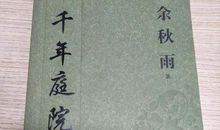 余秋雨
著
千年庭院